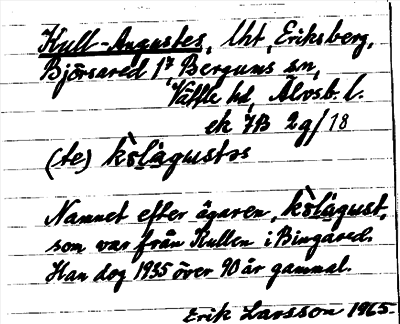 Kull-Augustes, lht, Eriksberg,
Björsared 1⁷, Bergums sn,
Vättle hd, Älvsb. l.
ek 7B 2g/18
(te) kòlàgustəs
Namnet efter ägaren, kòlàgust,
som var från Kullen i Bingared.
Han dog 1935 över 90 år gammal.
Erik Larsson 1965.